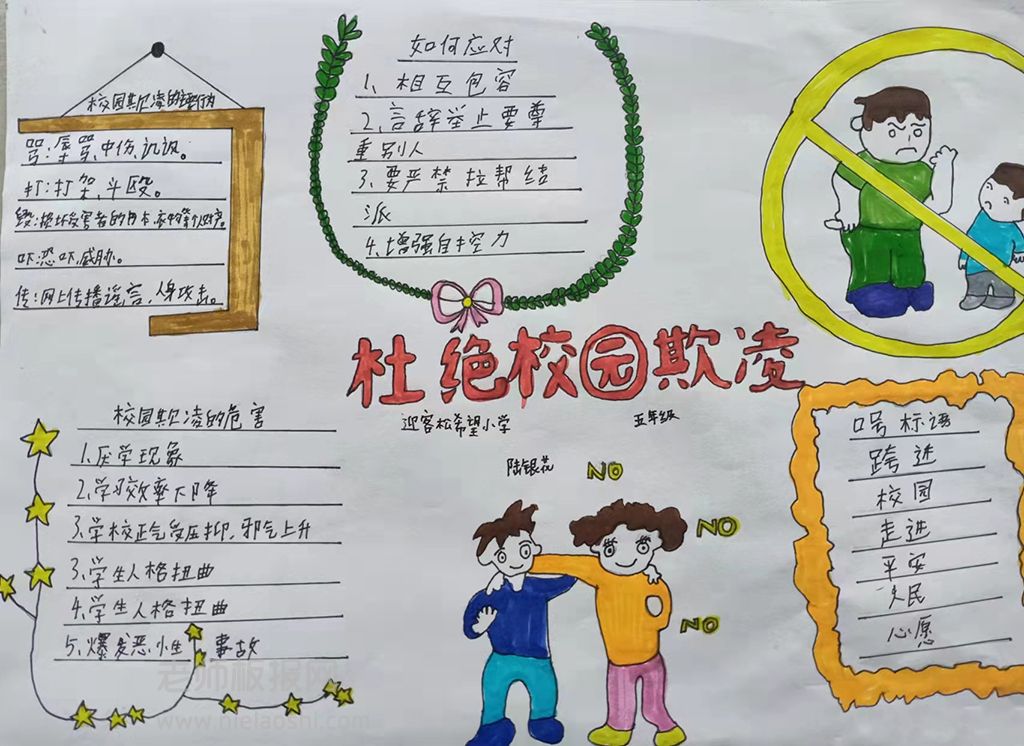 校园欺凌的
骂:辱骂、中伤、讥讽。
打:打架、斗殴。
吓:恐吓、威胁。
传:网上传播谣言,人身攻击。
如何应对
1、相互包容
2、言辞举止要尊
重别人
3、要严禁拉帮结
派
4、增强自控力
杜绝校园欺凌
迎客松希望小学
五年级
陆银花
校园欺凌的危害
1、厌学现象
2、学习效率下降
3、学校正气受压抑,邪气上升
3、学生人格扭曲
4、学生人格扭曲
5、爆发恶性 事故
NO
NO
NO
口号标语
跨进
校园
走进
平安
人民
心愿
老师板报网
www.nielaoshi.com